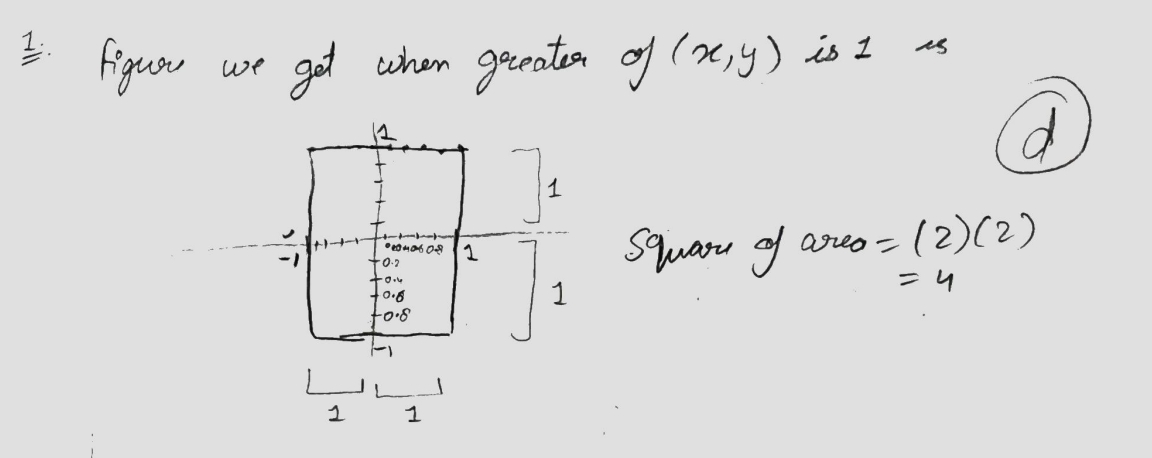 1. figure we get when greater of (x,y) is 1 is
d
1
1
-1
0.2 0.4 0.6 0.8
1
0.2
0.4
0.6
0.8
-1
1
1
1
Square of area = (2)(2)
= 4